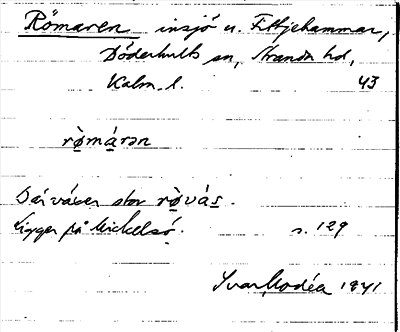 Römaren insjö u. Fittjehammar,
Döderhults sn, Stranda hd,
Kalm. l. 43
rö̀márən
Där växer stor rö̀vás.
Ligger på Mickelsö. s. 129
Ivar Modéer 1941